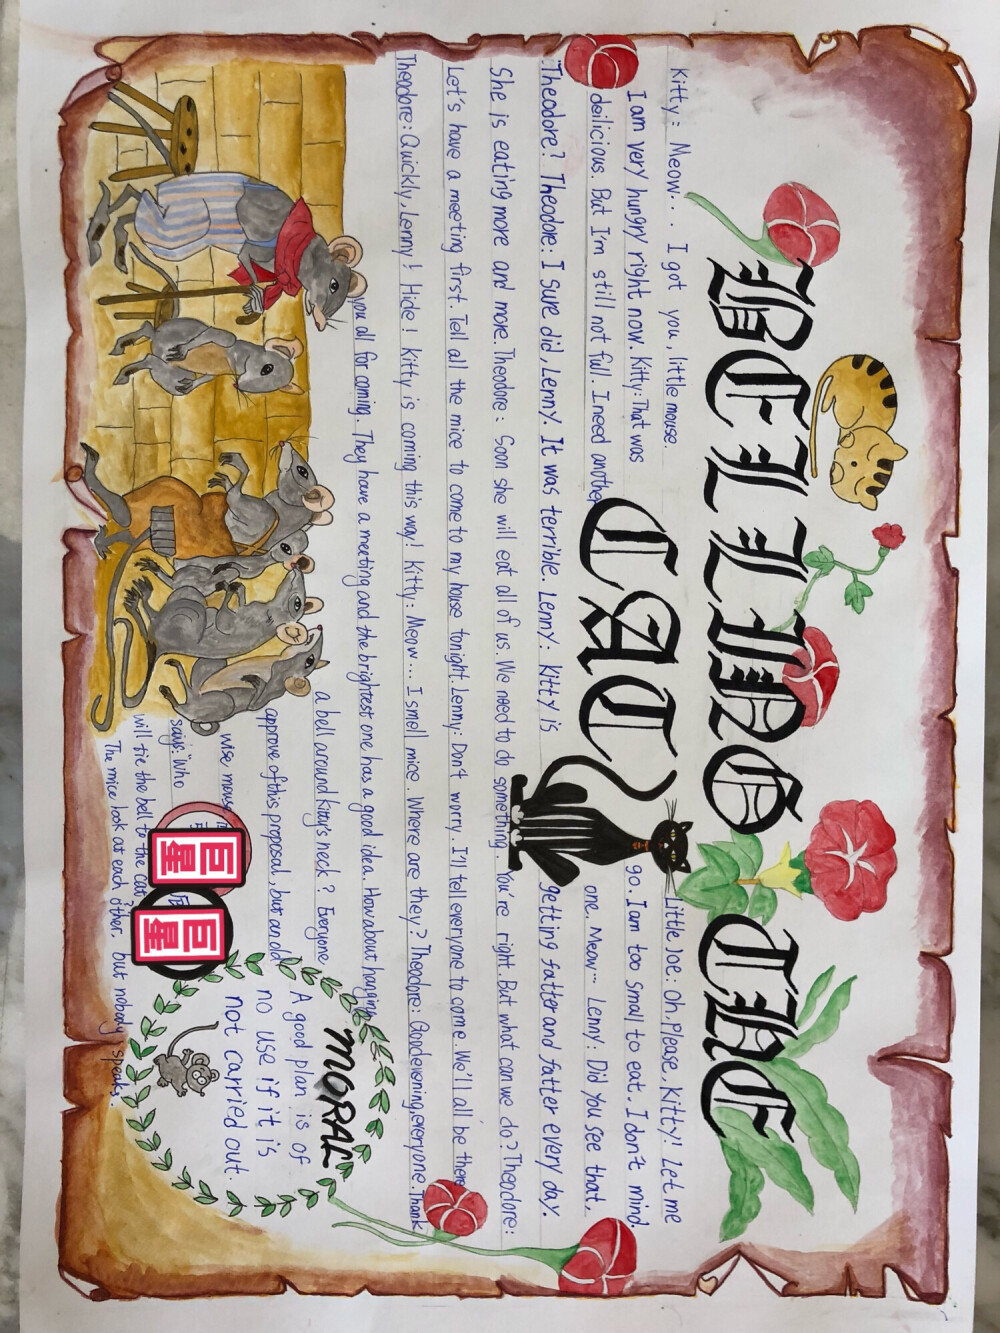 BELLING THE
CAT
Kitty: Meow... I got you, little mouse. Little Joe: Oh, Please, Kitty! Let me
go. I am too small to eat. I don't mind.
I am very hungry right now. Kitty: That was
deilicious. But I'm still not ful. I need another one. Meow... Lenny: Did you see that,
Theodore? Theodore: I sure did, Lenny. It was terrible. Lenny: Kitty is getting fatter and fatter every day.
She is eating more and more. Theodore: Soon she will eat all of us. We need to do something. You're right. But what can we do? Theodore:
Let's have a meeting first. Tell all the mice to come to my house tonight. Lenny: Don't worry. I'll tell everyone to come. We'll all be there
Theodore: Quickly, Lenny! Hide! Kitty is coming this way! Kitty: Meow... I smell mice. Where are they? Theodore: Good evening, everyone. Thank
you all for coming. They have a meeting and the brightest one has a good idea. How about hanging
a bell around kitty's neck? Everyone
approve of this proposal, but an old
wise mouse
says: "Who
will tie the bell to the cat
The mice look at each other. but nobody speaks.
MORAL
A good plan is of
no use if it is
not carried out.
巨星
巨星